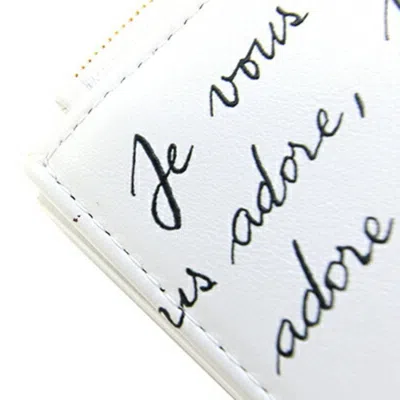 Je vous
us adore,
adore